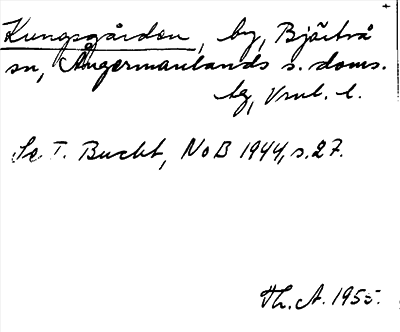 Kungsgården, by, Bjärtrå
sn, Ångermanlands s. doms.
tg, Vnrl. l.
Se T. Bucht, NoB 1944, s. 27.
Th. A. 1955.